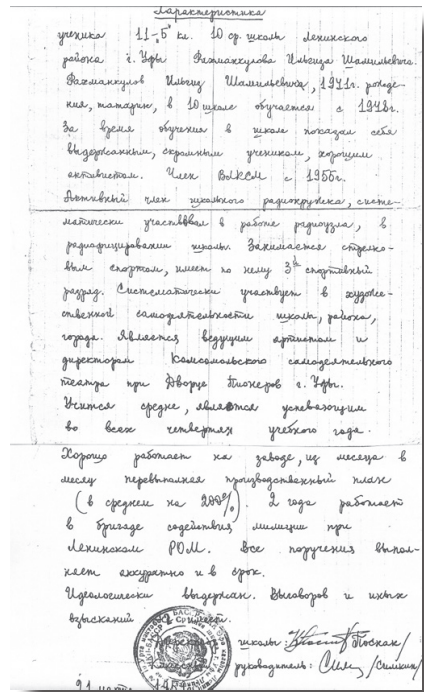 Характеристика
ученика 11-Б кл. 10 ср. школы Ленинского
района г. Уфы Рахманкулова Ильгиза Шамильевича.
Рахманкулов Ильгиз Шамильевич, 1941г. рожде-
ния, татарин, в 10 школе обучается с 1948г.
За время обучения в школе показал себя
выдержанным, скромным учеником, хорошим
активистом. Член ВЛКСМ с 1955г.
Активный член школьного радиокружка, систе-
матически участвовал в работе радиоузла, в
радиофицировании школы. Занимается стрелко-
вым спортом, имеет по нему 3й спортивный
разряд. Систематически участвует в художе-
ственной самодеятельности школы, района,
города. Является ведущим артистом и
директором Комсомольского самодеятельного
театра при Дворце Пионеров г. Уфы.
Учится средне, является успевающим
во всех четвертях учебного года.
Хорошо работает на заводе, из месяца в
месяц перевыполняя производственный план
(в среднем на 200%). 2 года работает
в бригаде содействия милиции при
Ленинском РОМ. Все поручения выпол-
няет аккуратно и в срок.
Идеологически выдержан. Выговоров и иных
взысканий
школы:
руководитель: